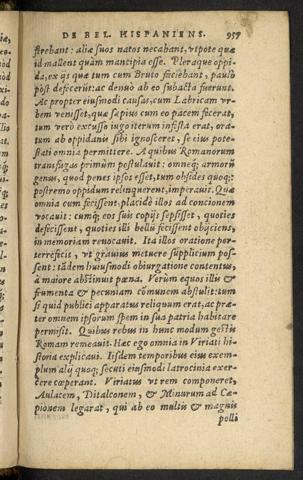 DE BEL. HISPANIENS. 957
ſtrebant: aliæ ſuos natos necabant, vtpote quæ
id mallent quàm mancipia eſſe. Pleraque oppi-
da, ex ijs quæ tum cum Bruto faciebant, paulò
pòſt defecerũt: ac denuò ab eo ſubacta fuerunt.
Ac propter eiuſmodi cauſas, cum Labricam vr-
bem veniſſet, quæ ſæpius cum eo pacem fecerat,
tum verò excuſſo iugo iterum infeſta erat, ora-
tum ab oppidanis ſibi ignoſceret, ſe eius pote-
ſtati omnia permittere. A quibus Romanorum
transfugas primùm poſtulauit: omneq; armorũ
genus, quod penes ipſos eſſet, tum obſides quoq;:
poſtremo oppidum relinquerent, imperauit. Quæ
omnia cum feciſſent, placidè illos ad concionem
vocauit: cumq; eos ſuis copijs ſepſiſſet, quoties
defeciſſent, quoties illi bellũ feciſſent obijciens,
in memoriam reuocauit. Ita illos oratione per-
terrefecit, vt grauius metuere ſupplicium poſ-
ſent: tãdem huiuſmodi obiurgatione contentus,
à maiore abſtinuit pœna. Verùm equos illis &
frumenta & pecuniam cõmunem abſtulit: tum
ſi quid publici apparatus reliquum erat, ac præ-
ter omnem ipſorum ſpem in ſua patria habitare
permiſit. Quibus rebus in hunc modum geſtis
Romam remeauit. Hæc ego omnia in Viriati hi-
ſtoria explicaui. Iiſdem temporibus eius exem-
plum alij quoq; ſecuti eiuſmodi latrocinia exer-
cere cœperant. Viriatus vt rem componeret,
Aulacem, Ditalconem, & Minurum ad Cæ-
pionem legarat, qui ab eo multis & magnis
polli